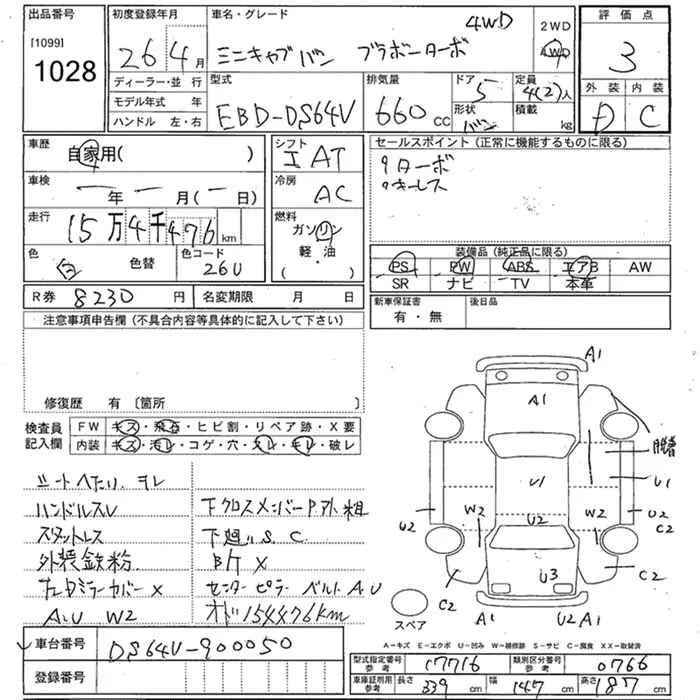 出品番号 初度登録年月 車名・グレード 4WD 2WD 評価点
[1099] 26年 4月 ミニキャブバン ブラボーターボ 4WD 3
1028
ディーラー・並行 型式 排気量 ドア 5 定員 4(2)人 外装 内装
モデル年式 年 EBD-DS64V 660 CC 形状 バン 積載 kg D C
ハンドル 左・右
車歴 自家用( ) シフト I AT セールスポイント(正常に機能するものに限る)
車検 ー年ー月(ー日) 冷房 AC ターボ
キーレス
走行 15万4千476km 燃料 ガソリン 軽・油 ( )
装備品(純正品に限る)
色 白 色替 色コード 26U PS PW ABS エアB AW
SR ナビ TV 本革
R券 8230円 名変期限 月 日 新車保証書 有・無 後日品
注意事項申告欄(不具合内容等具体的に記入して下さい)
修復歴 有 〔箇所
検査員記入欄 FW キズ・飛石・ヒビ割・リペア跡・X要
内装 キズ・汚レ・コゲ・穴・スレ・キレ・破レ
シートヘたり、ヨレ
ハンドルスレ 下クロスメンバーP外粗
スタットレス 下廻りS.C
外装鉄粉
ミラーカバーX センターピラー ベルトA.U
A.U W2 オド154476km
A1
A1
脱着
U1
U1
W2 U2 W2
U2
U2
C2
U3
C2
C2
A1
U2 A1
スペア
A-キズ E-エクボ U-凹み W-補修跡 S-サビ C-腐食 XX-取替済
車台番号 DS64V-900050
登録番号
型式指定番号 参考 17716 類別区分番号 参考 0766
車庫証明用 参考 長さ 339cm 幅 147cm 高さ 187cm